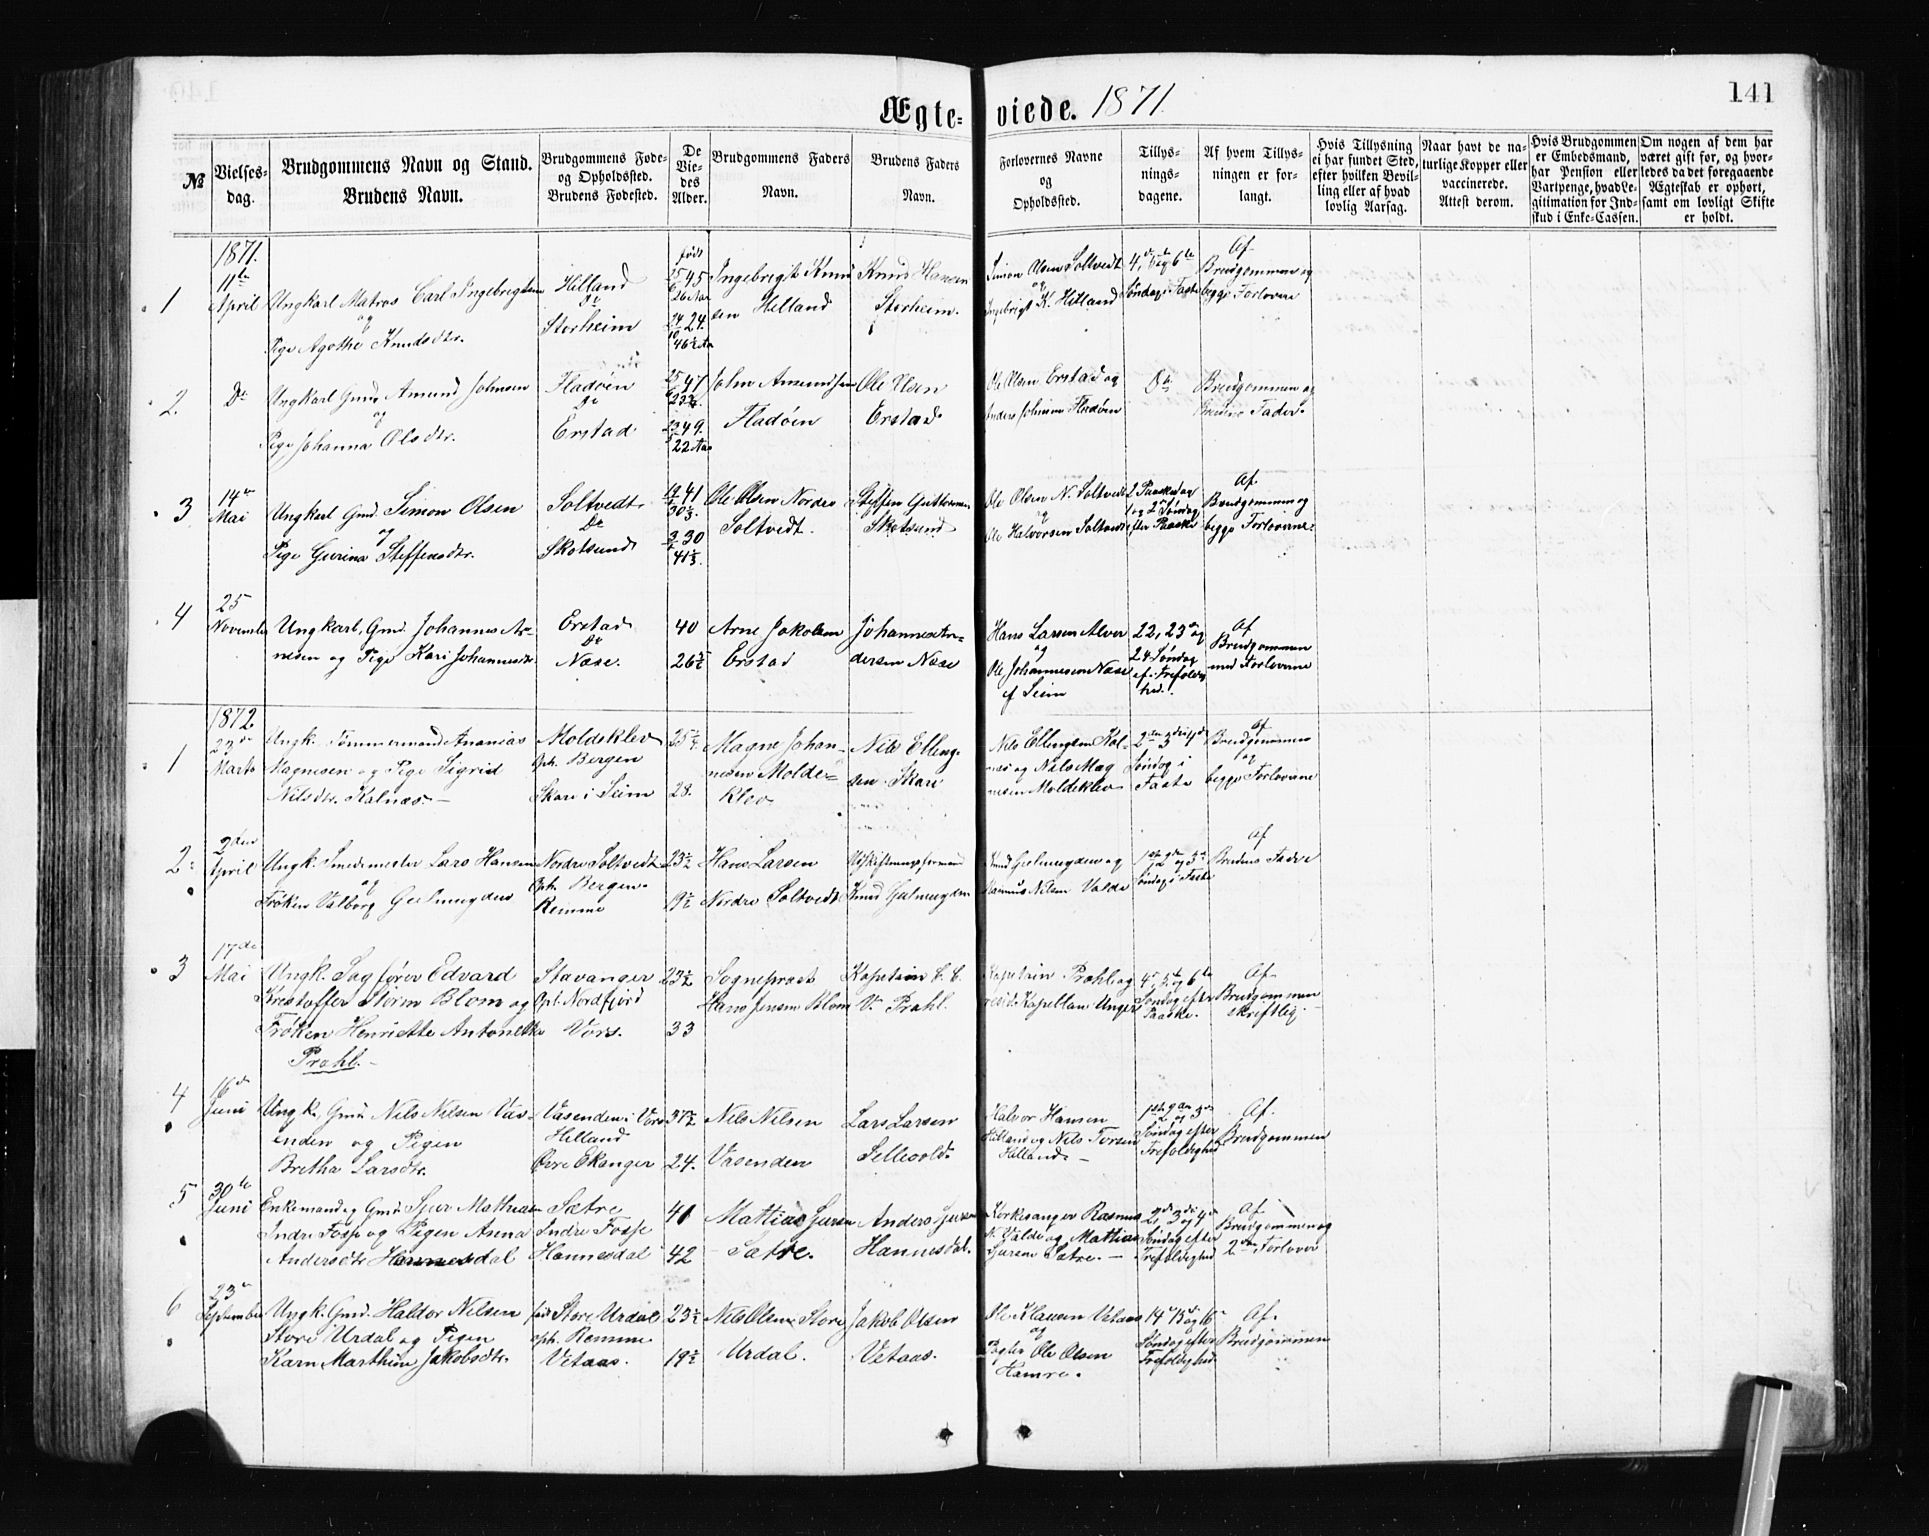 141
Ægteviede. 1871.
№
Vielses-
dag.
Brudgommens Navn og Stand.
Brudens Navn.
Brudgommens Føde-
og Opholdssted.
Brudens Fødested.
De
Vie-
des
Alder.
Brudgommens Faders
Navn.
Brudens Faders
Navn.
Forlovernes Navne
og
Opholdssted.
Tillys-
nings-
dagene.
Af hvem Tillys-
ningen er for-
langt.
Hvis Tillysning
ei har fundet Sted,
efter hvilken Bevil-
ling eller af hvad
lovlig Aarsag.
Naar havt de na-
turlige Kopper eller
vaccinerede.
Attest derom.
Hvis Brudgommen
er Embedsmand,
har Pension eller
Vartpenge, hvad Le-
gitimation for Ind-
skud i Enke-Cassen.
Om nogen af dem har
været gift før, og hvor-
ledes da det foregaaende
Ægteskab er ophørt,
samt om lovligt Skifte
er holdt.
1871.
1
11te
April
Ungkarl Matros Carl Ingebrigtsen
og
Pige Agothe Knudsdtr.
Hilland
Do
Storheim
født
45
26 Aar
24.
Ingebrigt Knud
sen Helland
Knud Hansen
Storheim.
Simon Olsen Soltvedt
og
Ingebrigt K. Helland
4de, 5te og 6te
Søndag i Faste
Af
Brudgommen og
begge Forlovere
2.
Do
Ungkarl Gmd. Amund Johnsen
og
Pige Johanna Olsdtr.
Fladøen
Do
Erstad
47
49.
22 Aar
John Amundsen
Fladøen
Ole Olsen
Erstad
Ole Olsen Erstad og
Anders Johnsen Fladøen
Do
Brudgommen og
Brudens Fader.
3
14de
Mai
Ungkarl Gmd. Simon Olsen
og
Pige Gurina Steffensdtr.
Soltvedt
Do
Skotsund
41
30
Ole Olsen Nordre
Soltvedt.
Steffen Guttormsen
Skotsund
Ole Olsen N. Soltvedt
og
Ole Halvorsen Soltvedt
2 Paaskedag
1 og 2 Søndag
efter Paaske
Af
Brudgommen og
begge Forloverne
4
25
November
Ungkarl, Gmd. Johannes Ar-
nesen og Pige Kari Johannesdtr.
Erstad
Do
Næse.
40
26½
Arne Jakobsen
Erstad
Johannes An-
dersen Næse
Hans Larsen Alver
og
Ole Johannesen Næse
af Seim
22, 23de og
24 Søndag
ef. Trefoldig
hed.
Af
Brudgommen
med Forloverne
1872.
1
22de
Marts
Ungk. Tømmermand Ananias
Magnesen og Pige Sigrid
Nilsdtr. Kalnæs.
Moldeklev
Oph. Bergen
Skare i Seim
25½
28.
Magne Johan-
nesen Molde-
klev
Nils Elling-
sen Skare
Nils Ellingsen Kal-
næs og Nils Mag
nesen Moldeklev
2den 3die 4de
Søndag i
Faste
Af
Brudgommen
og
begge Forloverne
2
2den
April
Ungk. Smedemester Lars Hansen
og
Frøken Valborg Gjelmeyden
Nordre Soltvedt
Oph. Bergen.
Remme
23½
19½
Hans Larsen
Nordre Soltvedt
Udskiftningsformand
Knud Gjelmeyden
Knud Gjelmeyden og
Rasmus Nilsen Valde
1ste 2den og 3die
Søndag i Faste
Af
Brudens Fader
3
17de
Mai
Ungk. Sagfører Edvard
Kristoffer Storm Blom og
Frøken Henriette Antonette
Prahl.
Stavanger
Oph. Nordfjord
Vors.
23½
33
Sogneprest
Hans Jensen Blom
Kaptein C. C.
V. Prahl.
Kaptein Prahl og
resid. Kapellan Unger
4de, 5te og 6te
Søndag efter
Paaske.
Af
Brudgommen
skriftlig.
4
16de
Juni
Ungk. Gmd. Nils Nilsen Vas-
enden og Pigen
Bretha Larsdtr.
Vasenden i Vors
Helland
Øvre Ekanger
37½
24.
Nils Nilsen
Vasenden
Lars Larsen
Sellevold
Halvor Hansen
Helland og Nils Torsen
Helland
1ste 2den og 3die
Søndag efter
Trefoldighed
Af
Brudgommen
5
30te
Juni
Enkemand og Gmd. Sjur Mathiasen
Indre Fosse og Pigen Anna
Andersdtr. Hannesdal
Sætre
Indre Fosse
Hannesdal
41
42
Mattias Sjursen
Sætre.
Anders Sjursen
Hannesdal.
Kirkesanger Rasmus
N. Valde og Mathias
Sjursen Sætre.
2den, 3die og 4de
Søndag efter
Trefoldighed
Af
Brudgommen og
2den Forlover
6
23de
September
Ungk. Gmd. Haldor Nilsen
Store Urdal og Pigen
Karn Marthine Jakobsdtr.
født Store Urdal
oph. Remme
Vetaas.
23½
19½
Nils Olsen Store
Urdal.
Jakob Olsen
Vetaas.
Ole Klausen Vetaas
og
Ole Olsen
Hamre.
14de 15de og 16de
Søndag efter
Trefoldighed
Af
Brudgommen